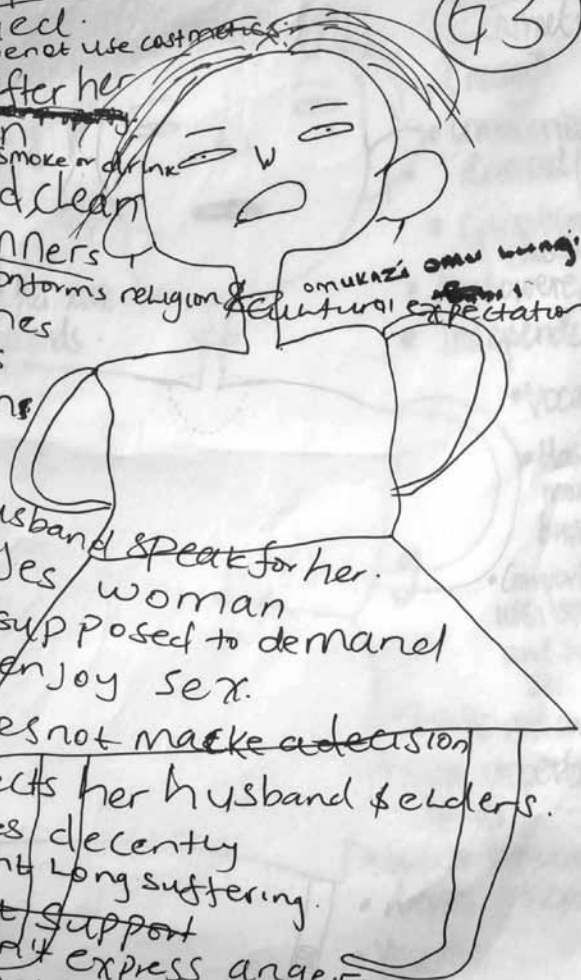 G3
ied.
enot use costmetics.
fter her
n
smoke or drink
d, clean
nners
onforms religion & Cultural expectation
omukazi omu
nes
s
ns
usband speak for her.
Yes woman
supposed to demand
enjoy sex.
es not make a decision
ects her husband & elders.
es decently
nt Long suffering.
t Support
n't express anger